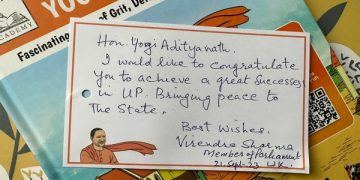 YOG
ACADEMY
Fascinating of Grit, De
Hon. Yogi Adityanath.
I would like to congratulate
you to achieve a great Successes
in UP. Bringing peace to
The State.
Best Wishes.
Virendra Sharma
Member of Parliament
21-Sept-23 U.K.